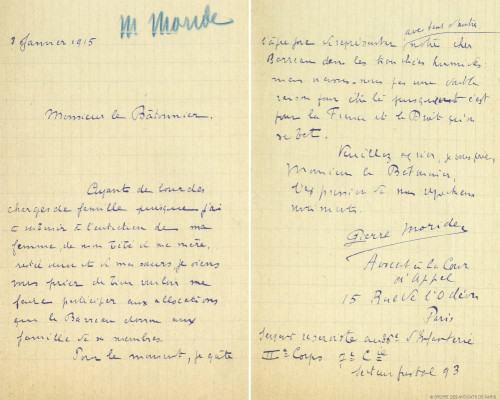 M Moride
3 Janvier 1915
Monsieur le Bâtonnier,
Ayant de lourdes
charges de famille puisque j'ai
à subvenir à l'entretien de ma
femme de mon bébé de ma mère,
veuve et de ma sœur je viens
vous prier de bien vouloir me
faire participer aux allocations
que le Barreau donne aux
familles de ses membres.
Pour le moment, je goûte
avec tant d'autres
l'âpre joie de représenter notre cher
Barreau dans les tranchées humides
mais n'avons-nous pas une
raison pour être là puisque c'est
pour la France et le Droit qu'on
se bat.
Veuillez agréer, je vous prie,
Monsieur le Bâtonnier,
l'expression de mes respectueux
sentiments.
Pierre Moride
Avocat à la Cour
d'Appel
15 Rue de l'Odéon
Paris
Sergent réserviste au 36e d'Infanterie
IIIe Corps 7e Cie
Secteur postal 93
© ORDRE DES AVOCATS DE PARIS